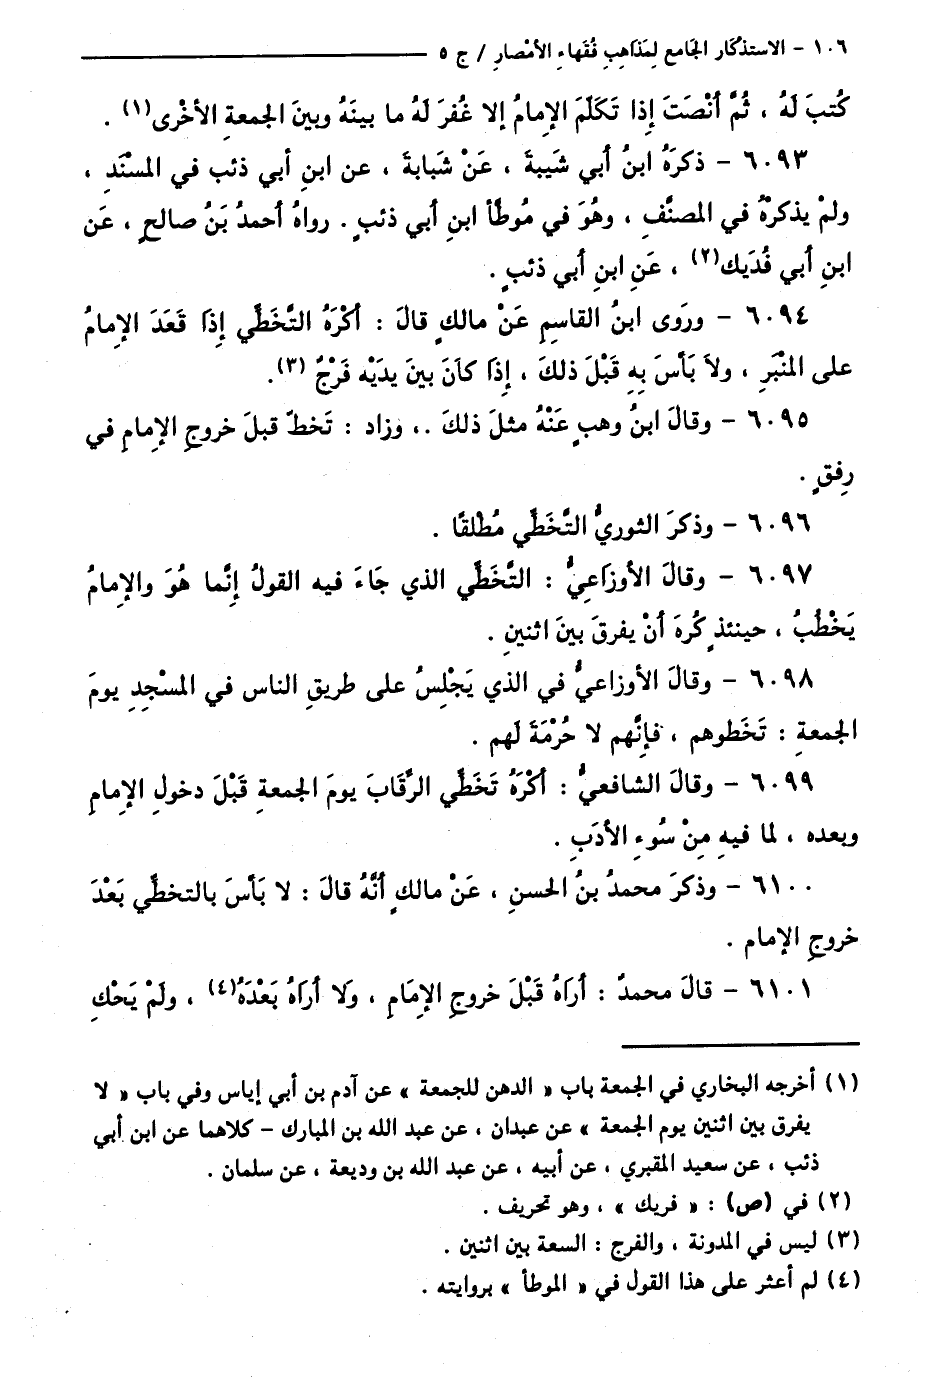 ١٠٦ - الاستذكار الجامع لمَذاهبِ فُقَهاءِ الأمْصارِ / ج ٥
كُتبَ لَهُ ، ثُمَّ أنْصَتَ إِذا تَكلَمَ الإمامُ إلا غُفرَ لَهُ ما بينَهُ وبينَ الجمعةِ الأخْرى(١) .
٦٠٩٣ - ذكرَهُ ابنُ أبي شَيبةَ ، عَنْ شَبابةَ ، عن ابنِ أبي ذئب في المسْنَدِ ،
ولمْ يذكرْهُ في المصنَّفِ ، وهُوَ في مُوطَّأ ابنِ أبي ذئبٍ . رواهُ أحمدُ بَنُ صالحٍ ، عَن
ابنِ أبي فُدَيك(٢) ، عَنِ ابنِ أبي ذئبٍ .
٦٠٩٤ - ورَوى ابنُ القاسِمِ عَنْ مالكٍ قالَ : أكْرَهُ التَّخَطِّي إِذَا قَعَدَ الإمامُ
على المنْبَرِ ، ولاَ بَأسَ بِهِ قَبْلَ ذلكَ ، إِذَا كاَنَ بينَ يديَْه فَرْجٌ (٣).
٦٠٩٥ - وقالَ ابنُ وهبٍ عَنْهُ مثلَ ذلكَ ،. وزاد : تَخطّ قبلَ خروجِ الإمامِ في
رِفقٍ .
٦٠٩٦ - وذكرَ الثوريُّ التَّخَطِّي مُطْلقًا .
٦٠٩٧ - وقالَ الأوزَاعِيُّ : التَّخَطِّي الذي جَاءَ فيه القولُ إِنَّما هُوَ والإِمامُ
يَخْطُبُ ، حينئذٍ كُرهَ أنْ يفرقَ بينَ اثنينِ .
٦٠٩٨ - وقالَ الأوزاعيُّ في الذي يَجْلِسُ على طريقِ الناس في المسْجِدِ يومَ
الجمعةِ : تَخَطوهم ، فإنَّهم لا حُرْمَةَ لَهم .
٦٠٩٩ - وقالَ الشافعيُّ : أكْرَهُ تَخَطِّي الرِّقَابَ يومَ الجمعةِ قَبْلَ دخولِ الإمامِ
وبعده ، لما فيهِ مِنْ سُوءِ الأدَبِ .
٦١٠٠ - وذكرَ محمدُ بنُ الحسنِ ، عَنْ مالكٍ أنَّهُ قالَ : لا بَأسَ بالتخطِّي بَعْدَ
خروجِ الإمام .
٦١٠١ - قالَ محمدٌ : أرَاهُ قَبْلَ خروجِ الإمَامِ ، ولا أراهُ بَعْدَهُ(٤) ، ولَمْ يَحْكِ
(١) أخرجه البخاري في الجمعة باب « الدهن للجمعة » عن آدم بن أبي إياس وفي باب « لا
يفرق بين اثنين يوم الجمعة » عن عبدان ، عن عبد الله بن المبارك - كلاهما عن ابن أبي
ذئب ، عن سعيد المقبري ، عن أبيه ، عن عبد الله بن وديعة ، عن سلمان .
(٢) في (ص) : « فريك » ، وهو تحريف .
(٣) ليس في المدونة ، والفرج : السعة بين اثنين .
(٤) لم أعثر على هذا القول في « الموطأ » بروايته .